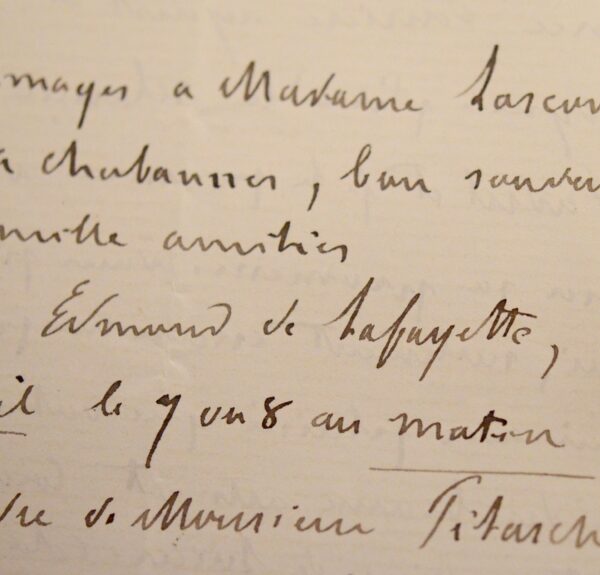 mages a Madame Lascou
a chabannes, bon souven
mille amitiés
Edmond de Lafayette,
il le 7 ou 8 au matin
de Monsieur Pitasch